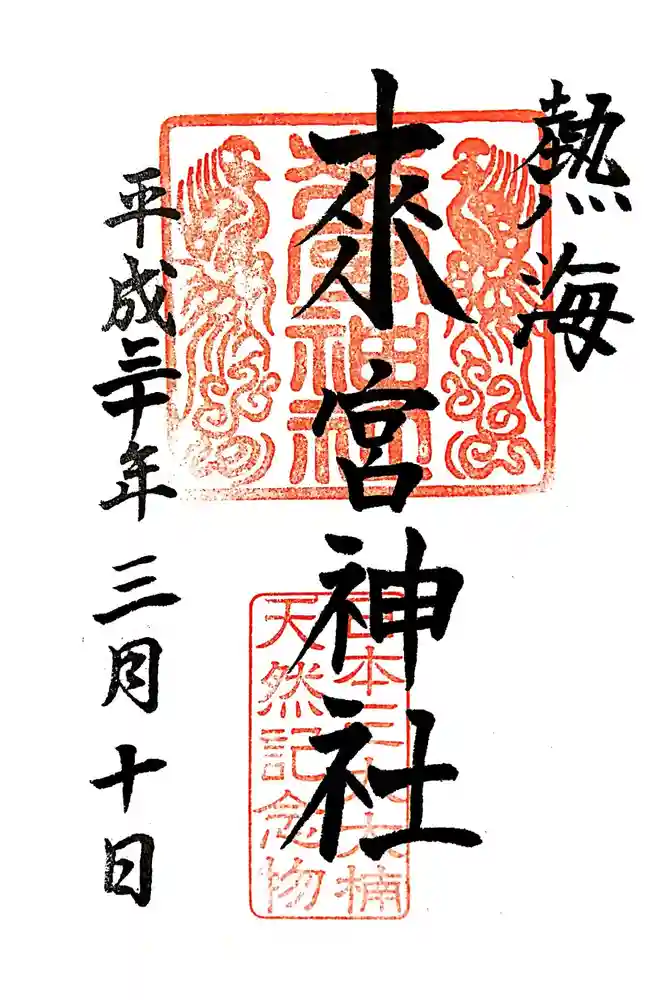 熱海
來宮神社
來宮神社
日本三大大楠
天然記念物
平成三十年三月十日